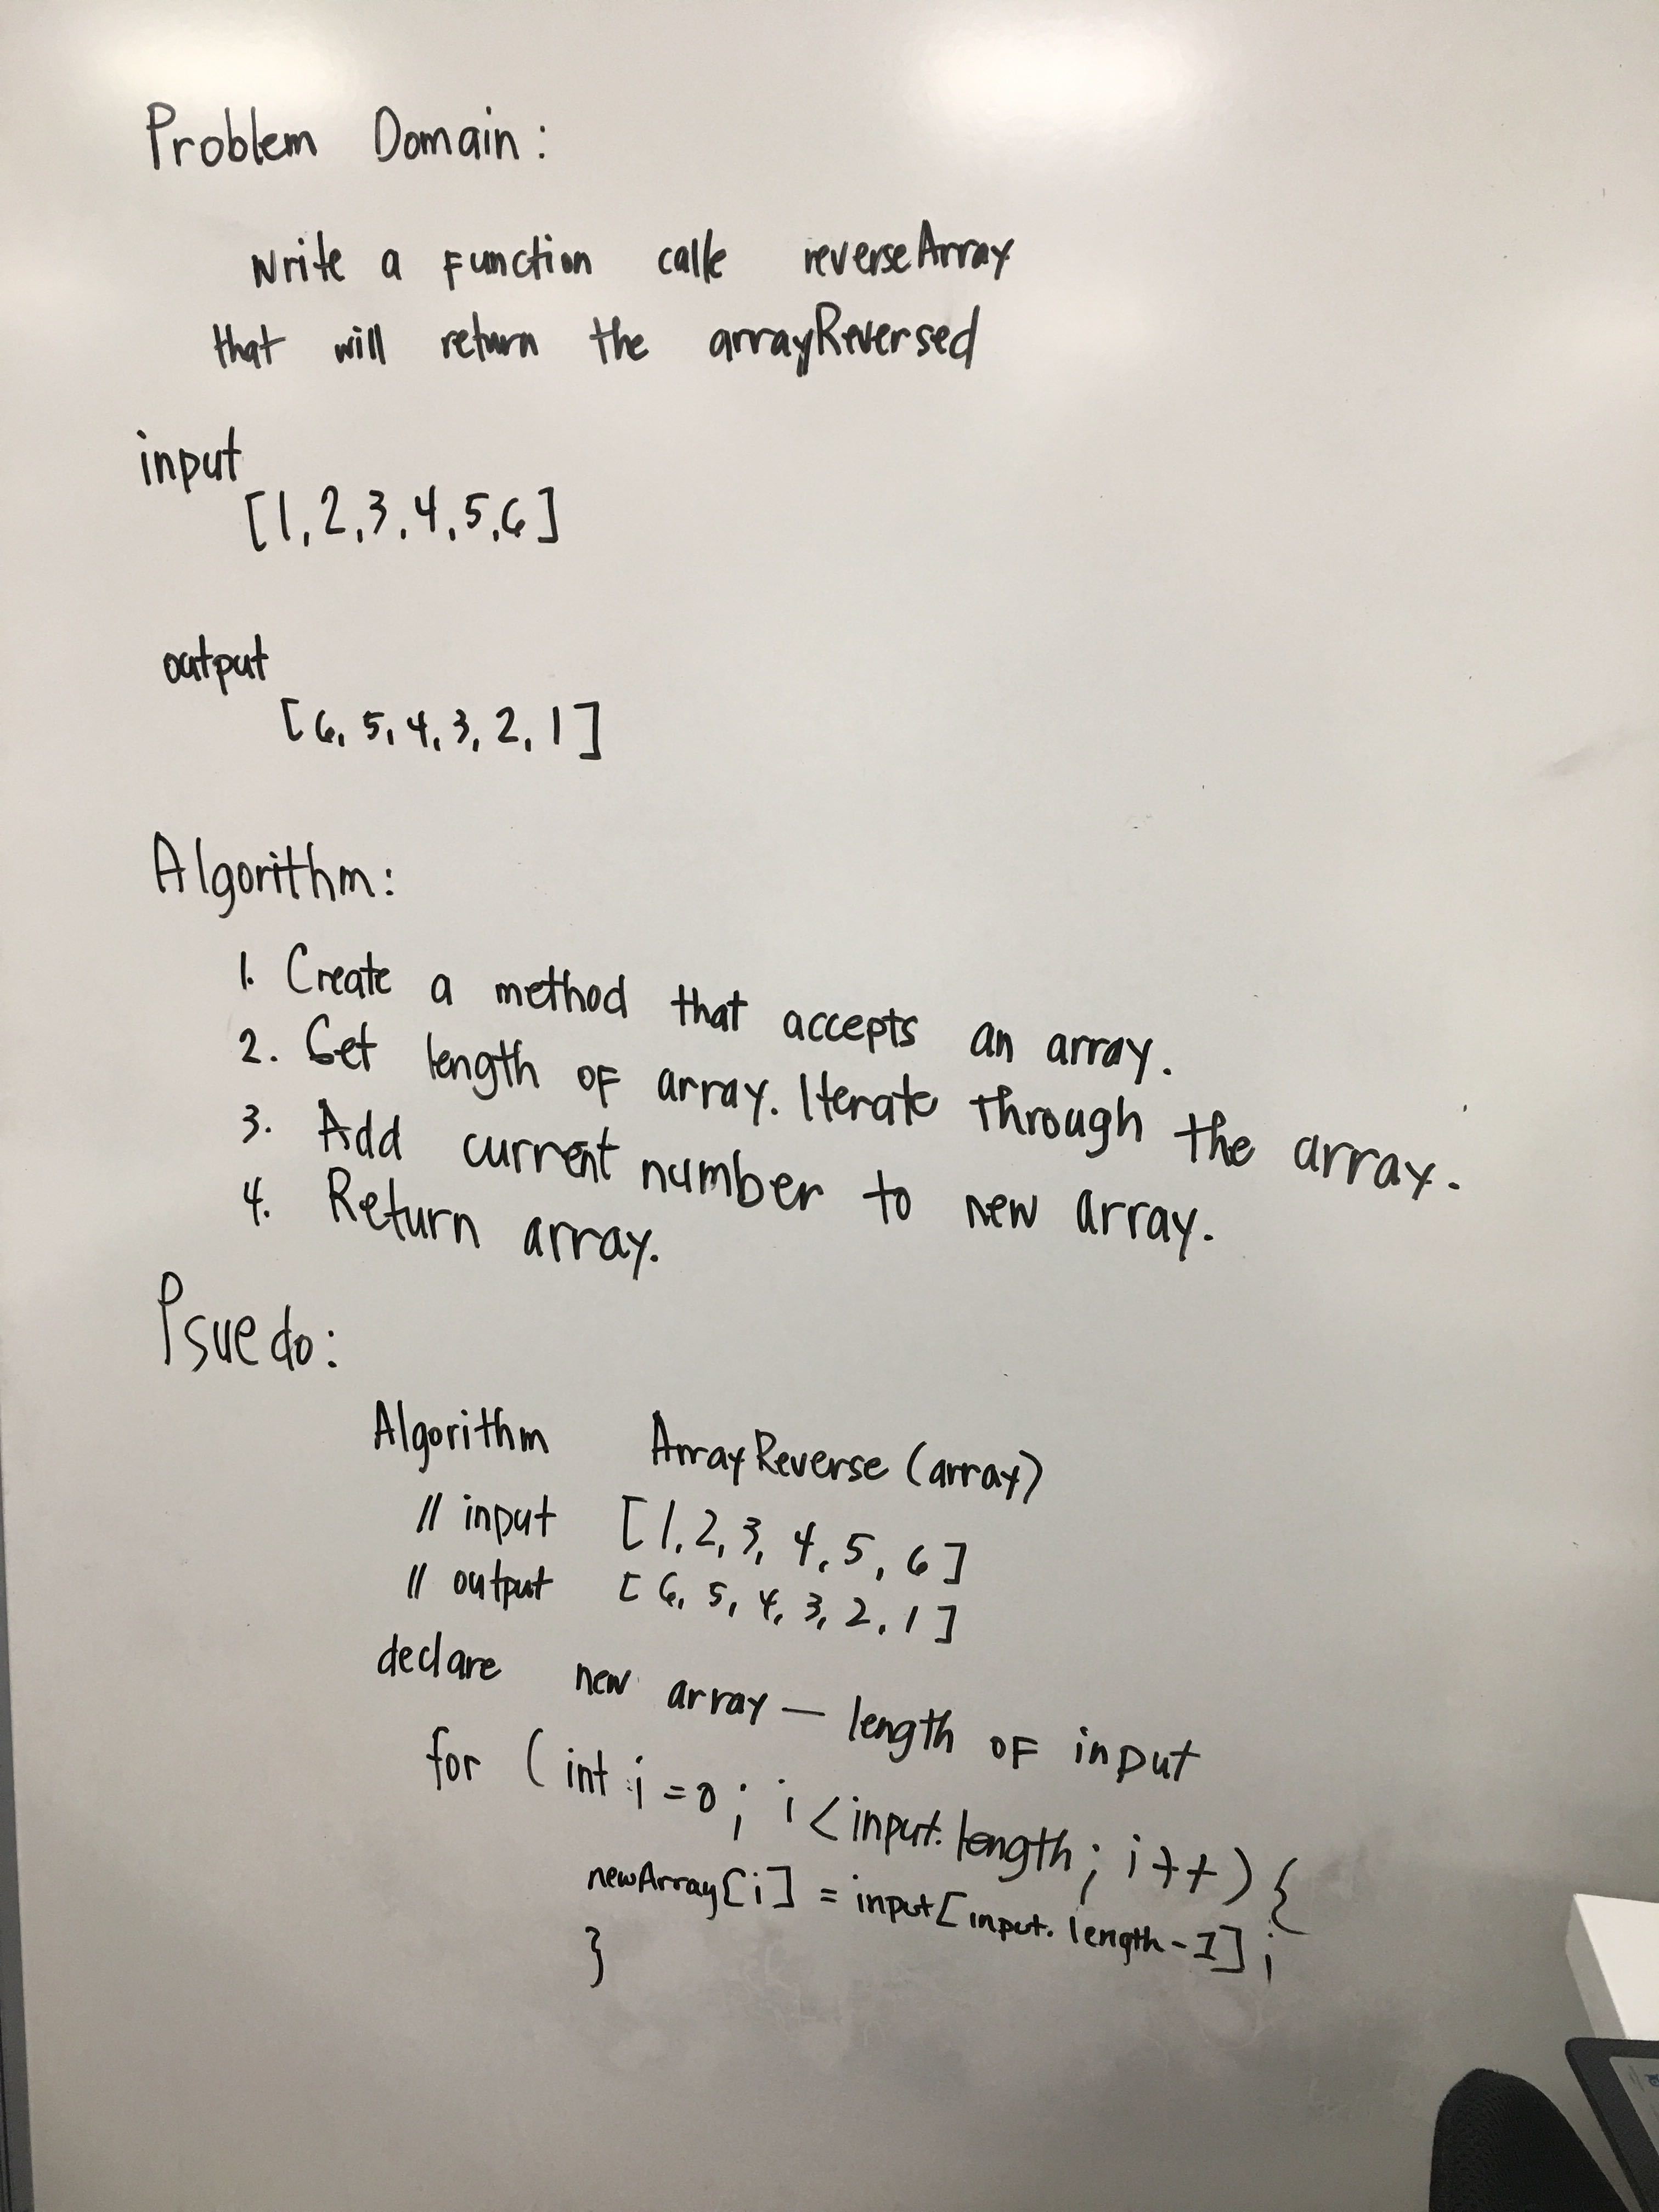 Problem Domain:
Write a Function calle reverseArray
that will return the arrayReversed
input
[1, 2, 3, 4, 5, 6]
output
[6, 5, 4, 3, 2, 1]
Algorithm:
1. Create a method that accepts an array.
2. Get length OF array. Iterate through the array.
3. Add current number to new array.
4. Return array.
Psuedo:
Algorithm ArrayReverse (array)
// input [1, 2, 3, 4, 5, 6]
// output [6, 5, 4, 3, 2, 1]
declare new array — length OF input
for (int i = 0; i < input.length; i++) {
newArray[i] = input[input.length-1];
}